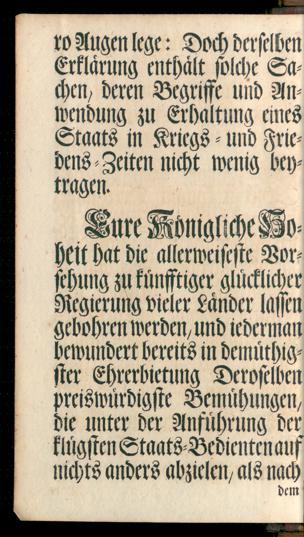 ro Augen lege: Doch derselben
Erklärung enthält solche Sa-
chen, deren Begriffe und An-
wendung zu Erhaltung eines
Staats in Kriegs- und Frie-
dens-Zeiten nicht wenig bey-
tragen.
Eure Königliche Ho-
heit hat die allerweiseste Vor-
sehung zu künfftiger glücklicher
Regierung vieler Länder lassen
gebohren werden, und iederman
bewundert bereits in demüthig-
ster Ehrerbietung Deroselben
preiswürdigste Bemühungen,
die unter der Anführung der
klügsten Staats-Bedienten auf
nichts anders abzielen, als nach
dem